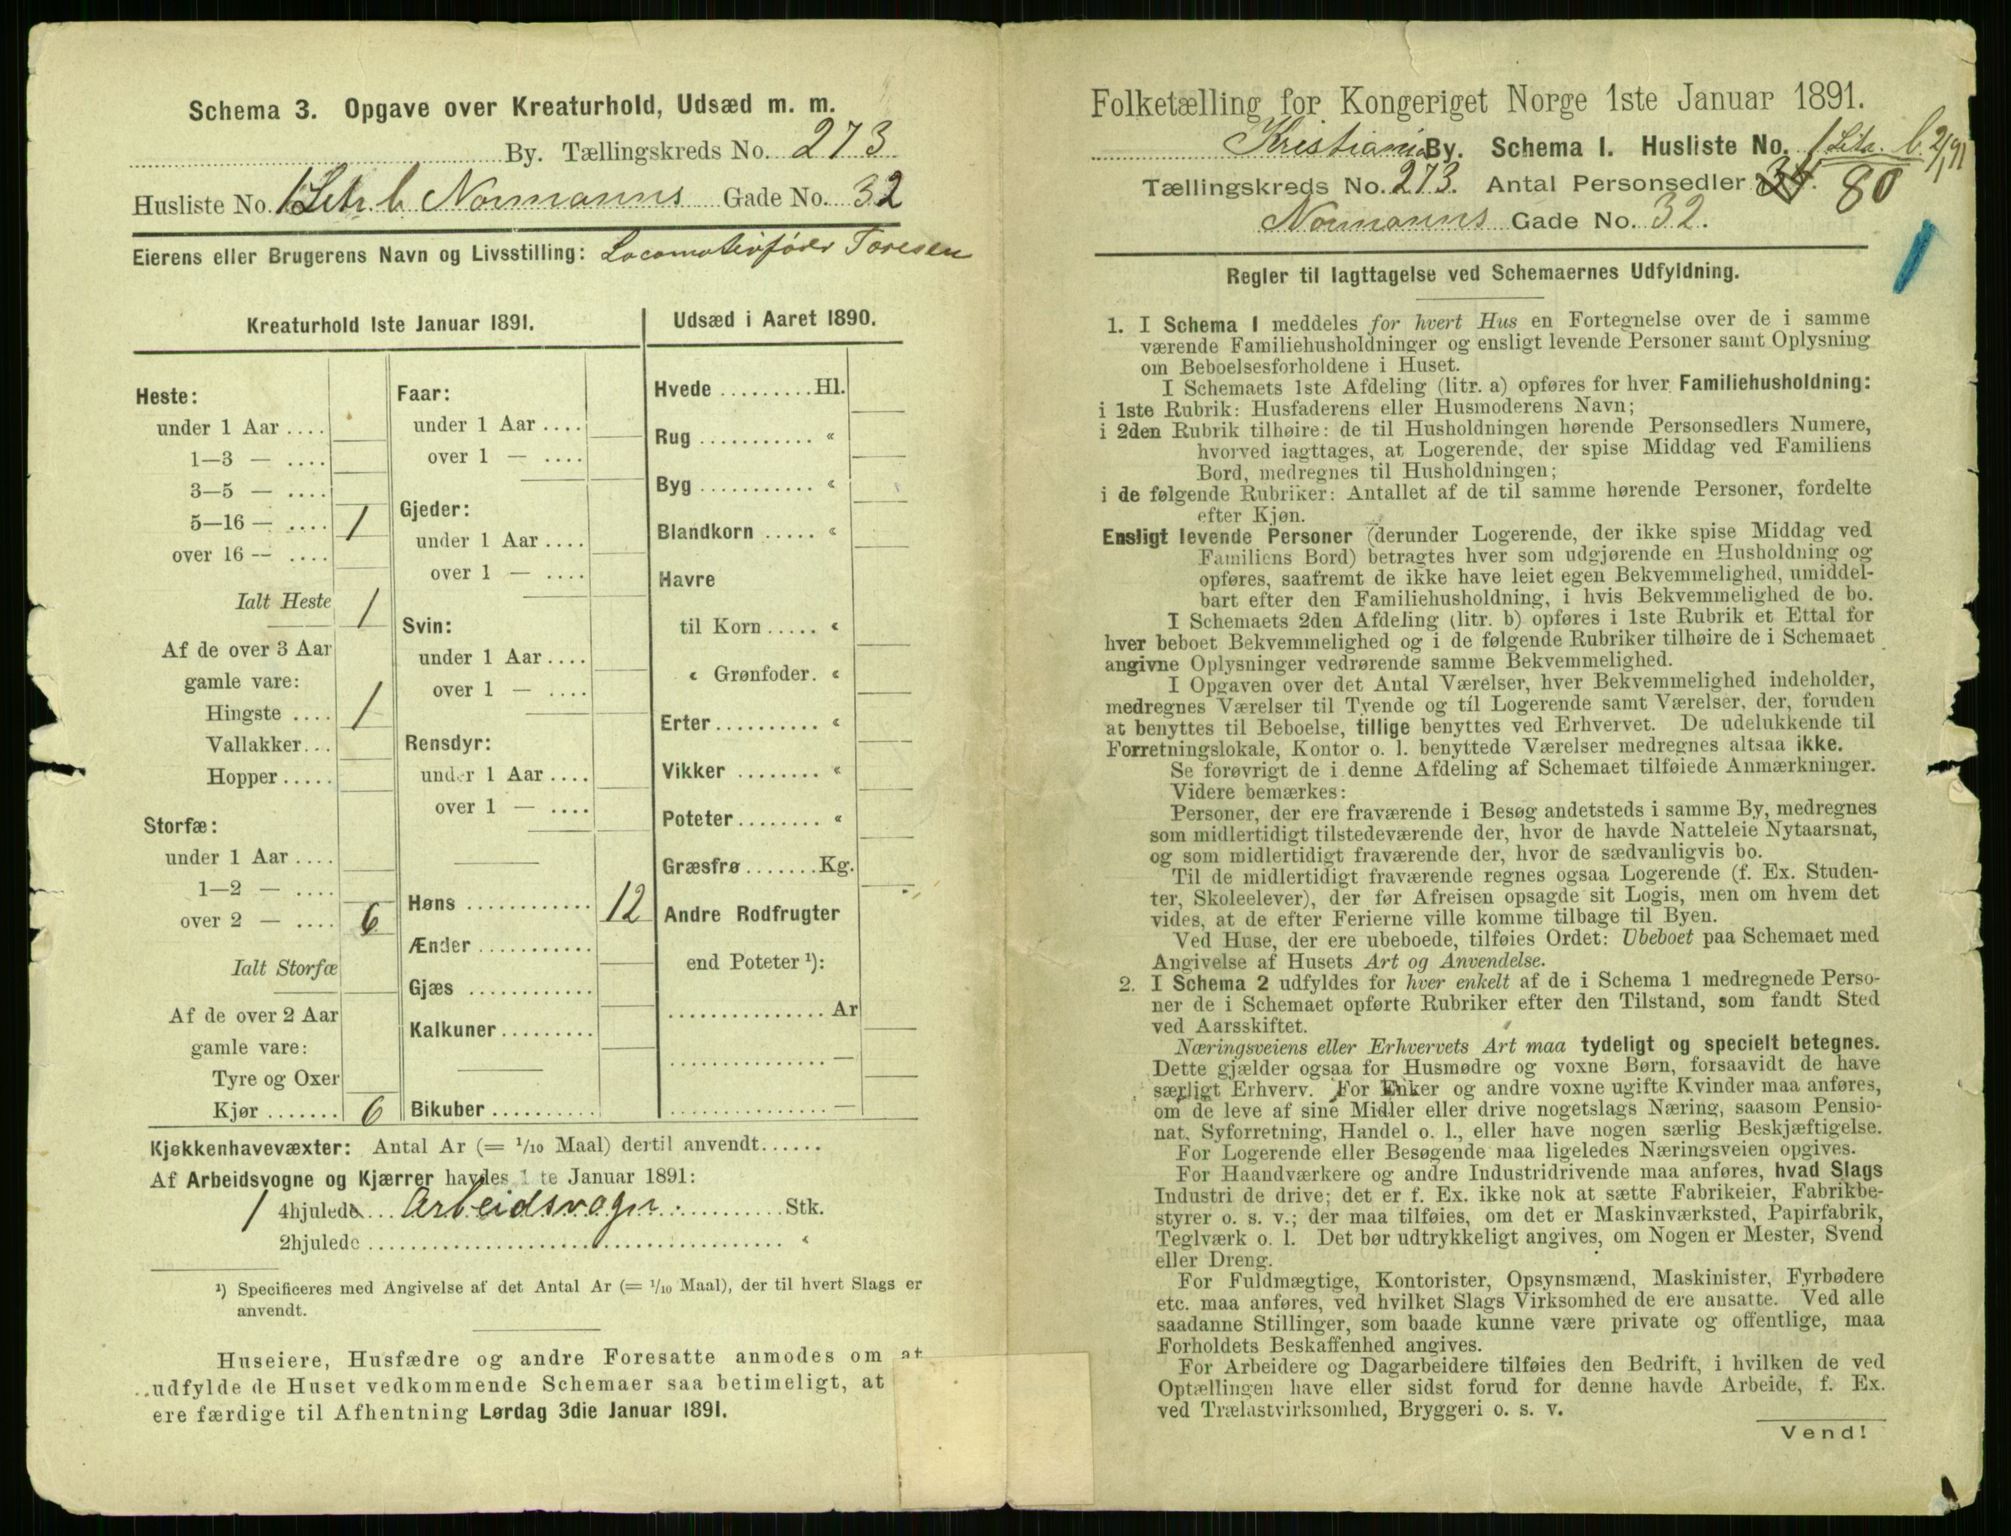 Schema 3. Opgave over Kreaturhold, Udsæd m. m.
By. Tællingskreds No. 273
Husliste No. 1 Litr b Normanns Gade No. 32
Eierens eller Brugerens Navn og Livsstilling: Locomotivfører Toresen
Kreaturhold 1ste Januar 1891.
Heste:
under 1 Aar ....
1—3 — ....
3—5 — ....
5—16 — .... 1
over 16 — ....
Ialt Heste 1
Af de over 3 Aar
gamle vare:
Hingste .... 1
Vallakker...
Hopper .....
Storfæ:
under 1 Aar ....
1—2 — ....
over 2 — .... 6
Ialt Storfæ
Af de over 2 Aar
gamle vare:
Tyre og Oxer
Kjør ....... 6
Faar:
under 1 Aar ....
over 1 — ....
Gjeder:
under 1 Aar ....
over 1 — ....
Svin:
under 1 Aar ....
over 1 — ....
Rensdyr:
under 1 Aar ....
over 1 — ....
Høns ............ 12
Ænder ...........
Gjæs ............
Kalkuner.........
Bikuber ..........
Udsæd i Aaret 1890.
Hvede .........Hl.
Rug ........... «
Byg ........... «
Blandkorn ..... «
Havre
til Korn ..... «
« Grønfoder. «
Erter.......... «
Vikker ........ «
Poteter ........ «
Græsfrø .......Kg.
Andre Rodfrugter
end Poteter ¹):
............... Ar
............... —
............... —
Kjøkkenhavevæxter: Antal Ar (= 1/10 Maal) dertil anvendt......
Af Arbeidsvogne og Kjærrer havdes 1 te Januar 1891:
1 4hjulede... Arbeidsvogn ........... Stk.
2hjulede ............................ «
¹) Specificeres med Angivelse af det Antal Ar (= 1/10 Maal), der til hvert Slags er
anvendt.
Huseiere, Husfædre og andre Foresatte anmodes om at
udfylde de Huset vedkommende Schemaer saa betimeligt, at
ere færdige til Afhentning Lørdag 3die Januar 1891.
Folketælling for Kongeriget Norge 1ste Januar 1891.
Kristiania By. Schema I. Husliste No. 1 Litr. b. 2/1 91
Tællingskreds No. 273. Antal Personsedler 80
Normanns Gade No. 32.
1
Regler til Iagttagelse ved Schemaernes Udfyldning.
1. I Schema 1 meddeles for hvert Hus en Fortegnelse over de i samme
værende Familiehusholdninger og ensligt levende Personer samt Oplysning
om Beboelsesforholdene i Huset.
I Schemaets 1ste Afdeling (litr. a) opføres for hver Familiehusholdning:
i 1ste Rubrik: Husfaderens eller Husmoderens Navn;
i 2den Rubrik tilhøire: de til Husholdningen hørende Personsedlers Numere,
hvorved iagttages, at Logerende, der spise Middag ved Familiens
Bord, medregnes til Husholdningen;
i de følgende Rubriker: Antallet af de til samme hørende Personer, fordelte
efter Kjøn.
Ensligt levende Personer (derunder Logerende, der ikke spise Middag ved
Familiens Bord) betragtes hver som udgjørende en Husholdning og
opføres, saafremt de ikke have leiet egen Bekvemmelighed, umiddel-
bart efter den Familiehusholdning, i hvis Bekvemmelighed de bo.
I Schemaets 2den Afdeling (litr. b) opføres i 1ste Rubrik et Ettal for
hver beboet Bekvemmelighed og i de følgende Rubriker tilhøire de i Schemaet
angivne Oplysninger vedrørende samme Bekvemmelighed.
I Opgaven over det Antal Værelser, hver Bekvemmelighed indeholder,
medregnes Værelser til Tyende og til Logerende samt Værelser, der, foruden
at benyttes til Beboelse, tillige benyttes ved Erhvervet. De udelukkende til
Forretningslokale, Kontor o. l. benyttede Værelser medregnes altsaa ikke.
Se forøvrigt de i denne Afdeling af Schemaet tilføiede Anmærkninger.
Videre bemærkes:
Personer, der ere fraværende i Besøg andetsteds i samme By, medregnes
som midlertidigt tilstedeværende der, hvor de havde Natteleie Nytaarsnat,
og som midlertidigt fraværende der, hvor de sædvanligvis bo.
Til de midlertidigt fraværende regnes ogsaa Logerende (f. Ex. Studen-
ter, Skoleelever), der før Afreisen opsagde sit Logis, men om hvem det
vides, at de efter Ferierne ville komme tilbage til Byen.
Ved Huse, der ere ubeboede, tilføies Ordet: Ubeboet paa Schemaet med
Angivelse af Husets Art og Anvendelse.
2. I Schema 2 udfyldes for hver enkelt af de i Schema 1 medregnede Perso-
ner de i Schemaet opførte Rubriker efter den Tilstand, som fandt Sted
ved Aarsskiftet.
Næringsveiens eller Erhvervets Art maa tydeligt og specielt betegnes.
Dette gjælder ogsaa for Husmødre og voxne Børn, forsaavidt de have
særligt Erhverv. For Enker og andre voxne ugifte Kvinder maa anføres,
om de leve af sine Midler eller drive nogetslags Næring, saasom Pensio-
nat, Syforretning, Handel o. l., eller have nogen særlig Beskjæftigelse.
For Logerende eller Besøgende maa ligeledes Næringsveien opgives.
For Haandværkere og andre Industridrivende maa anføres, hvad Slags
Industri de drive; det er f. Ex. ikke nok at sætte Fabrikeier, Fabrikbe-
styrer o. s. v.; der maa tilføies, om det er Maskinværksted, Papirfabrik,
Teglværk o. l. Det bør udtrykkeligt angives, om Nogen er Mester, Svend
eller Dreng.
For Fuldmægtige, Kontorister, Opsynsmænd, Maskinister, Fyrbødere
etc. maa anføres, ved hvilket Slags Virksomhed de ere ansatte. Ved alle
saadanne Stillinger, som baade kunne være private og offentlige, maa
Forholdets Beskaffenhed angives.
For Arbeidere og Dagarbeidere tilføies den Bedrift, i hvilken de ved
Optællingen have eller sidst forud for denne havde Arbeide, f. Ex.
ved Trælastvirksomhed, Bryggeri o. s. v.
Vend!